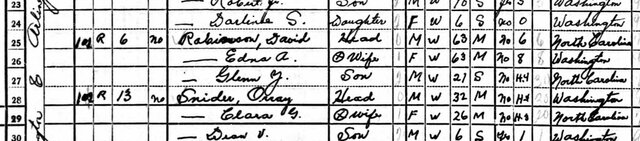 23 Robert J. Son M W 10 S yes 3 Washington
24 — Darlene S. Daughter F W 6 S no 0 Washington
25 R 6 no Robinson, David Head M W 63 M no 6 North Carolina
26 — Edna A. wife F W 63 M no 8 8 Washington
27 — Glenn Y. Son M W 21 S no H-4 North Carolina
28 R 13 no Snider, Orray Head M W 32 M no Washington
29 — Clara G. wife F W 26 M no North Carolina
30 — Dean V. Son M W 6 S 1 Washington